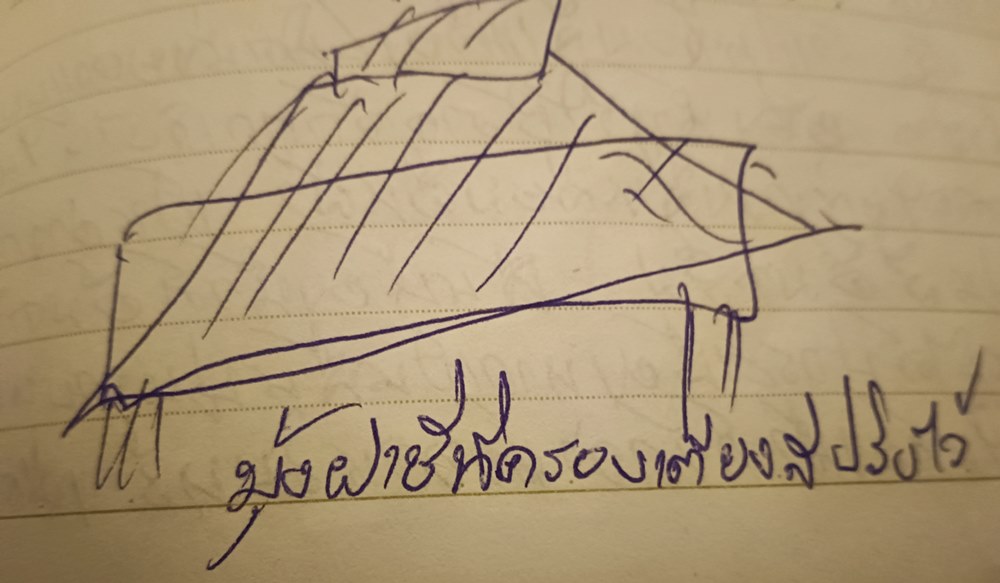 มุ้งฝาชีที่ครอบเตียงสปริงไว้